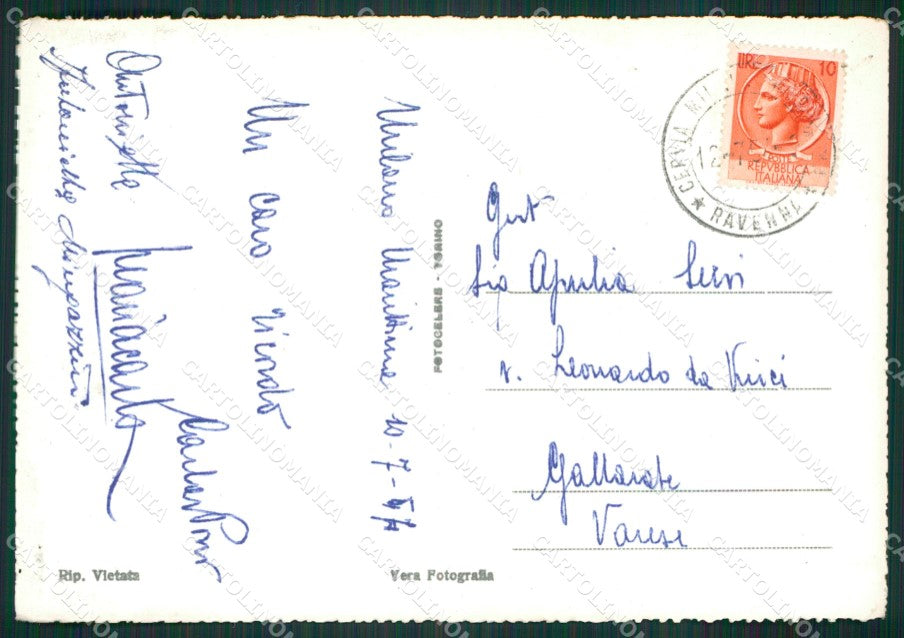 Milano Marittima 10-7-54
Un caro ricordo
Antonietta
Mariacarla
Gent
Sig Apulia Servi
v. Leonardo da Vinci
Gallarate
Varese
FOTOCELERE - TORINO
Rip. Vietata
Vera Fotografia
LIRE 10
POSTE
REPVBBLICA
ITALIANA
CERVIA MIL
RAVENNA
CARTOLINOMANIA